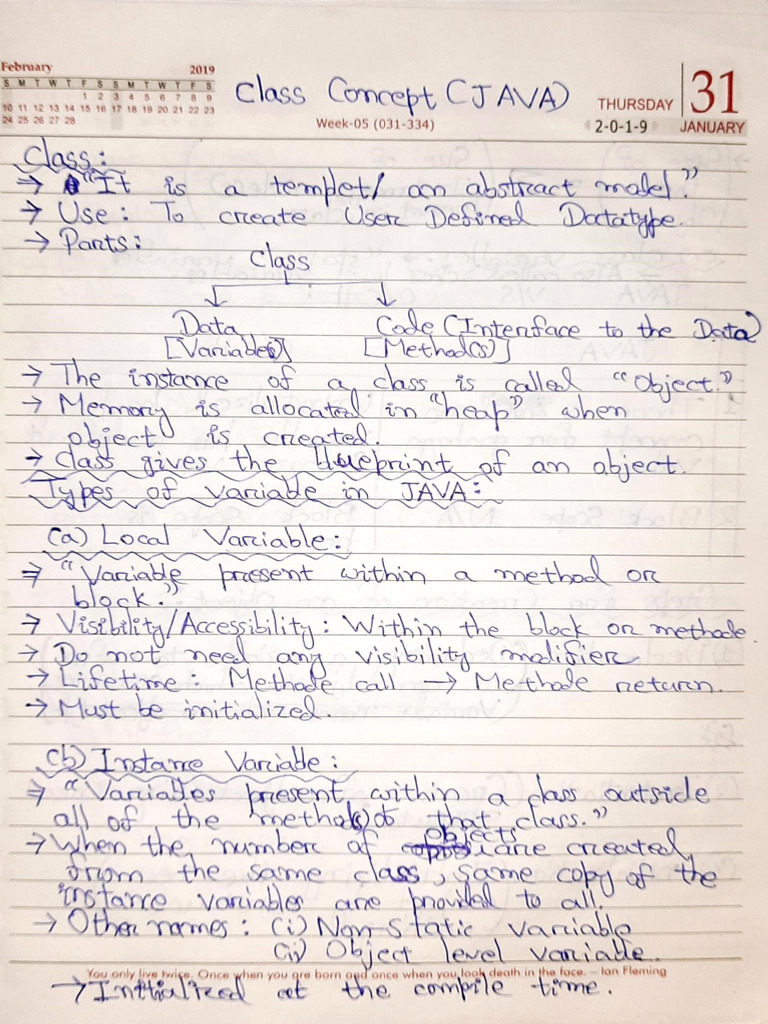 February 2019
S M T W T F S S M T W T F S
1 2 3 4 5 6 7 8 9
10 11 12 13 14 15 16 17 18 19 20 21 22 23
24 25 26 27 28
Class Concept (JAVA)
Week-05 (031-334)
THURSDAY 31
2-0-1-9 JANUARY
Class:
→ "It is a templet/ an abstract model."
→ Use: To create User Defined Datatype.
→ Parts:
Class
Data Code (Interface to the Data)
[Variable(s)] [Method(s)]
→ The instance of a class is called "Object."
→ Memory is allocated in "heap" when
object is created.
→ Class gives the blueprint of an object.
Types of variable in JAVA:
(a) Local Variable:
⇒ "Variable present within a method or
block."
→ Visibility/Accessibility: Within the block or methode.
→ Do not need any visibility modifier
→ Lifetime: Methode call → Methode return.
→ Must be initialized.
(b) Instance Variable:
⇒ "Variables present within a class outside
all of the method(s) of that class."
→ When the number of objects are created
from the same class, same copy of the
instance variables are provided to all.
→ Other names: (i) Non-Static variable
(ii) Object level variable.
You only live twice. Once when you are born and once when you look death in the face. – Ian Fleming
→ Initialized at the compile time.